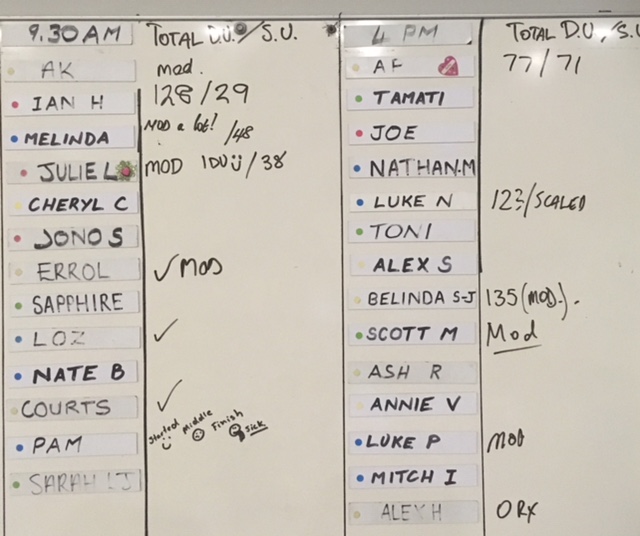 9.30AM TOTAL D.U./S.U.
AK mod.
IAN H 128/29
MELINDA MOD a lot! /48
JULIE L MOD 1DU /38
CHERYL C
JONO S
ERROL ✓ MOD
SAPPHIRE
LOZ ✓
NATE B
COURTS ✓
Started Middle Finish Sick
PAM
SARAH
4 PM TOTAL D.U, S.U
AF 77/71
TAMATI
JOE
NATHAN.M
LUKE N 123/SCALED
TONI
ALEX S
BELINDA S-J 135 (MOD.).
SCOTT M Mod
ASH R
ANNIE V
LUKE P MOD
MITCH I
ALEX H ORX